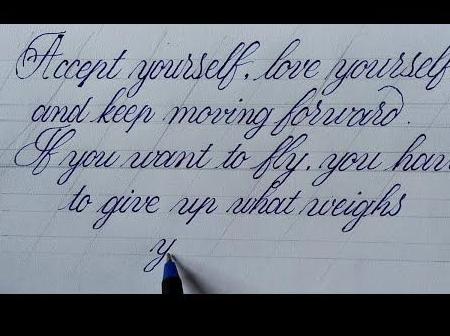 Accept yourself, love yourself
and keep moving forward.
If you want to fly, you hav
to give up what weighs
y